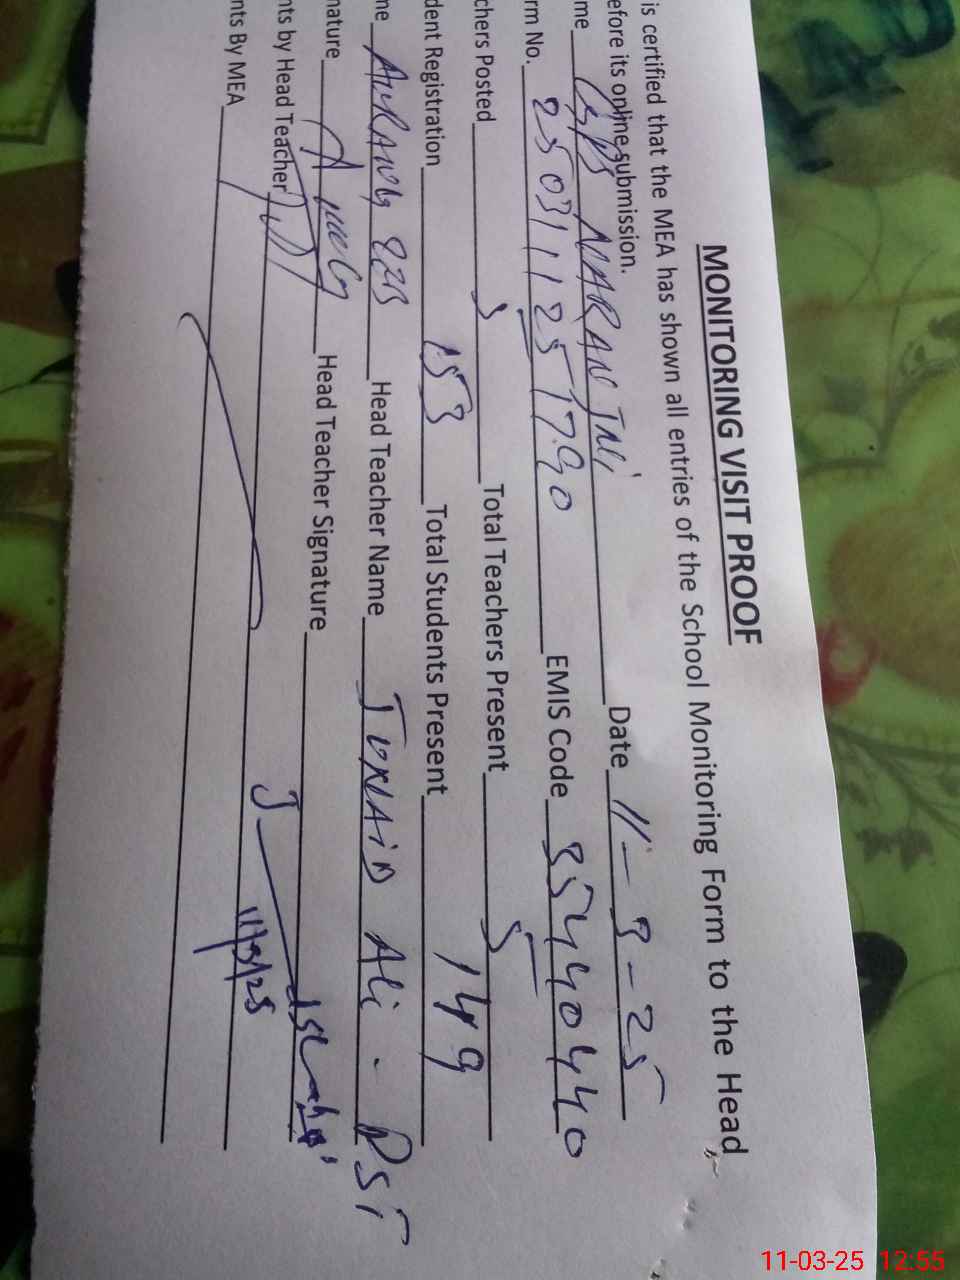 MONITORING VISIT PROOF
is certified that the MEA has shown all entries of the School Monitoring Form to the Head
efore its online submission.
me NARANJALI Date 11-3-25
rm No. 2503111251790 EMIS Code 35440440
chers Posted 5 Total Teachers Present 5
dent Registration 153 Total Students Present 149
me AURANG ZEB Head Teacher Name JUNAID Ali - PST
nature Head Teacher Signature
nts by Head Teacher
11/3/25
nts By MEA
11-03-25 12:55